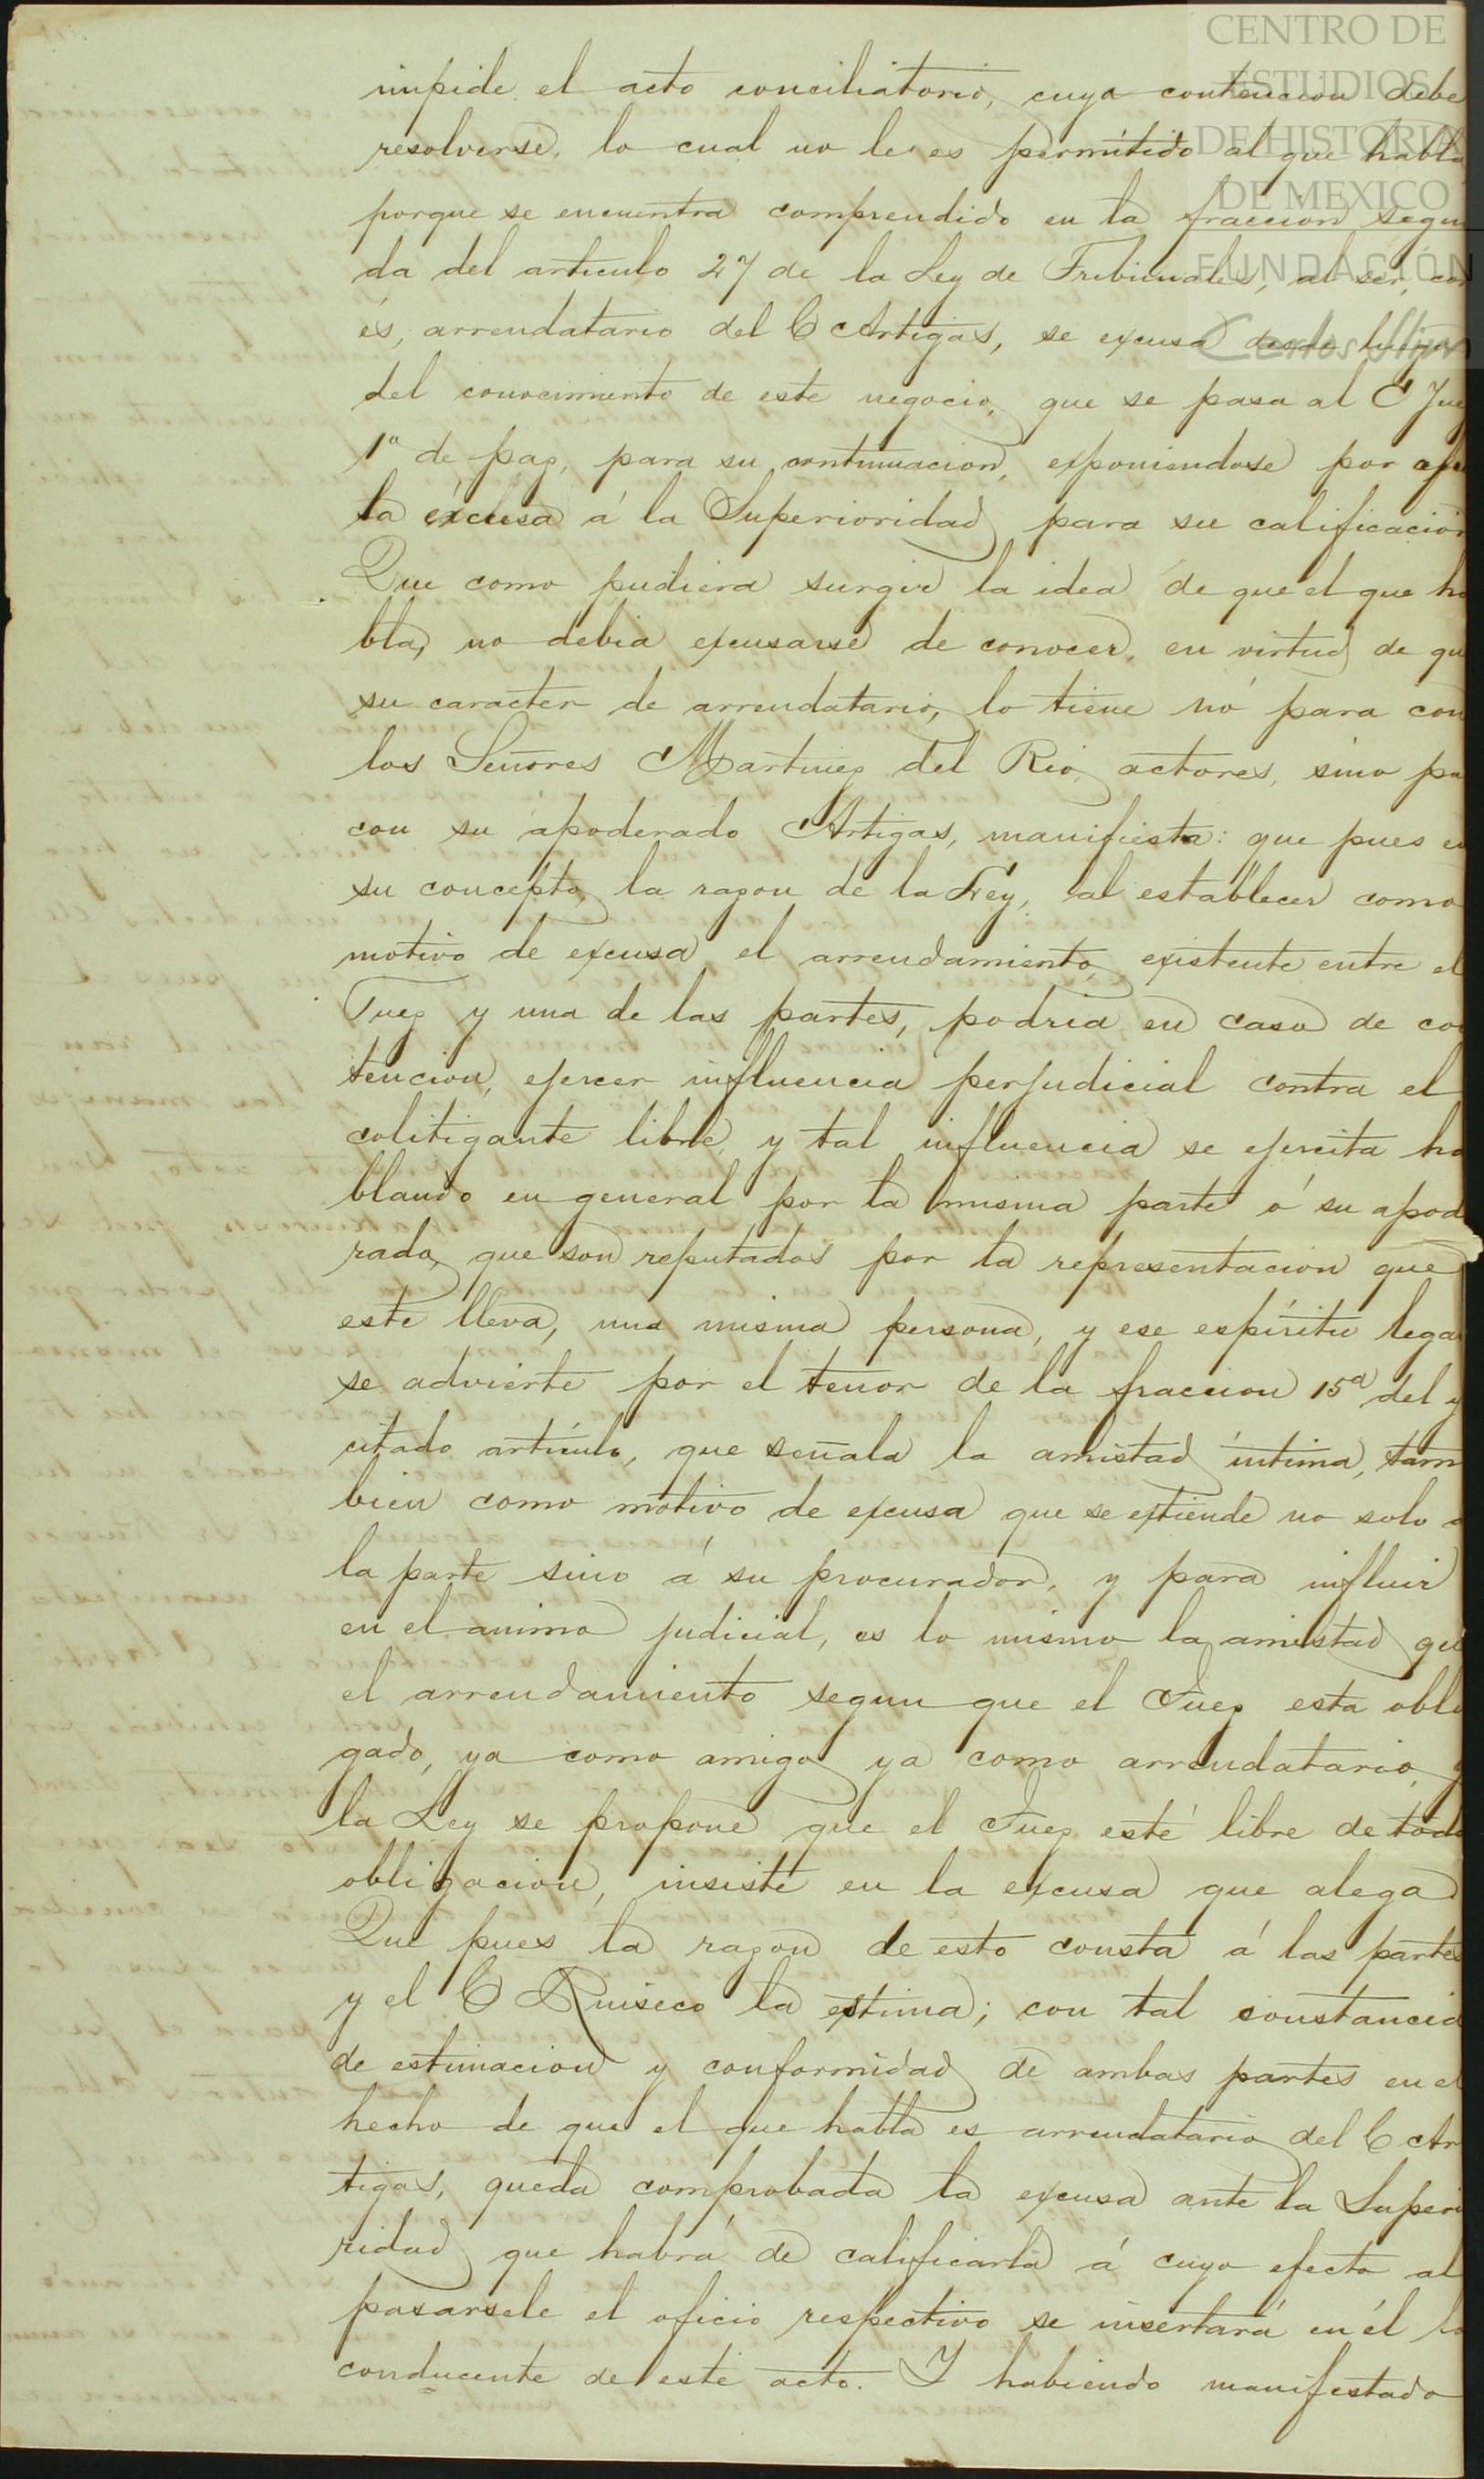 CENTRO DE
ESTUDIOS
DE HISTORIA
DE MEXICO
FUNDACIÓN
impide el acto conciliatorio, cuya contencion debe
resolverse, lo cual no le es permitido al que habla
porque se encuentra comprendido en la fraccion segun
da del articulo 27 de la Ley de Tribunales, al ser, co
és, arrendatario del C Artigas, se excusa desde luego
del conocimiento de este negocio, que se pasa al C Jue
1º de paz, para su continuacion, exponiendose por
la excusa á la Superioridad para su calificacion
Que como pudiera surgir la idea de que el que ha
bla, no debia excusarse de conocer, en virtud de qu
su caracter de arrendatario, lo tiene nó para con
los Señores Martinez del Rio, actores, sino pa
con su apoderado Artigas, manifiesta: que pues en
su concepto, la razon de la Ley, al establecer como
motivo de excusa el arrendamiento, existente entre el
Juez y una de las partes, podria en caso de con
tencion, ejercer influencia perjudicial contra el
colitigante libre, y tal influencia se ejercita ha
blando en general por la misma parte ó su apode
rado, que son reputados por la representacion que
este lleva, una misma persona, y ese espíritu legal
se advierte por el tenor de la fraccion 15ª del y
citado artículo, que señala la amistad íntima, tam
bien como motivo de excusa que se extiende no solo a
la parte sino á su procurador, y para influir
en el animo judicial, es lo mismo la amistad que
el arrendamiento segun que el Juez esta obli
gado, ya como amigo ya como arrendatario, y
la Ley se propone que el Juez esté libre de toda
obligacion, insiste en la excusa que alega
Que pues la razon de esto consta á las partes
y el C Ruiseco la estima; con tal constancia
de estimacion y conformidad de ambas partes en el
hecho de que el que habla es arrendatario del C Ar
tigas, queda comprobada la excusa ante la Superio
ridad que habrá de calificarla á cuyo efecto al
pasarsele el oficio respectivo se insertará en él lo
conducente de este acto. Y habiendo manifestado